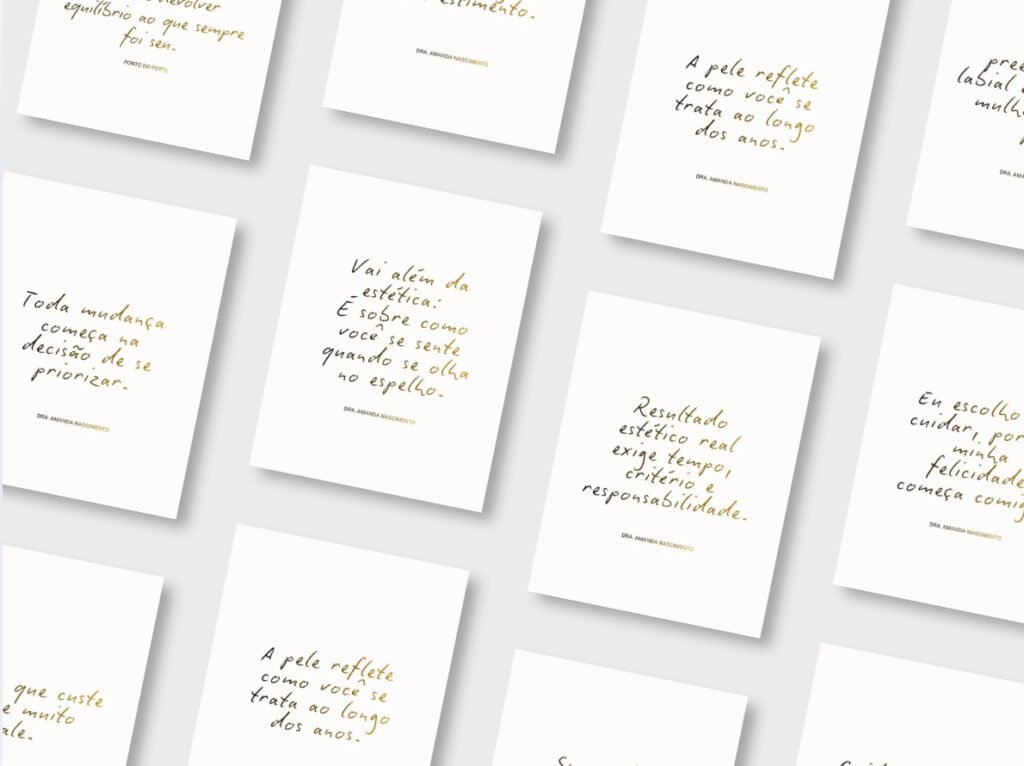 equilíbrio ao que sempre
foi seu.
PONTO DO PERFIL
DRA. AMANDA NASCIMENTO
A pele reflete
como você se
trata ao longo
dos anos.
DRA. AMANDA NASCIMENTO
labial
DRA.
Toda mudança
começa na
decisão de se
priorizar.
DRA. AMANDA NASCIMENTO
Vai além da
estética:
É sobre como
você se sente
quando se olha
no espelho.
DRA. AMANDA NASCIMENTO
Resultado
estético real
exige tempo,
critério e
responsabilidade.
DRA. AMANDA NASCIMENTO
Eu escolho
cuidar, por
minha
felicidade
começa comig
DRA. AMANDA NASCIMENTO
que custe
e muito
ale.
A pele reflete
como você se
trata ao longo
dos anos.